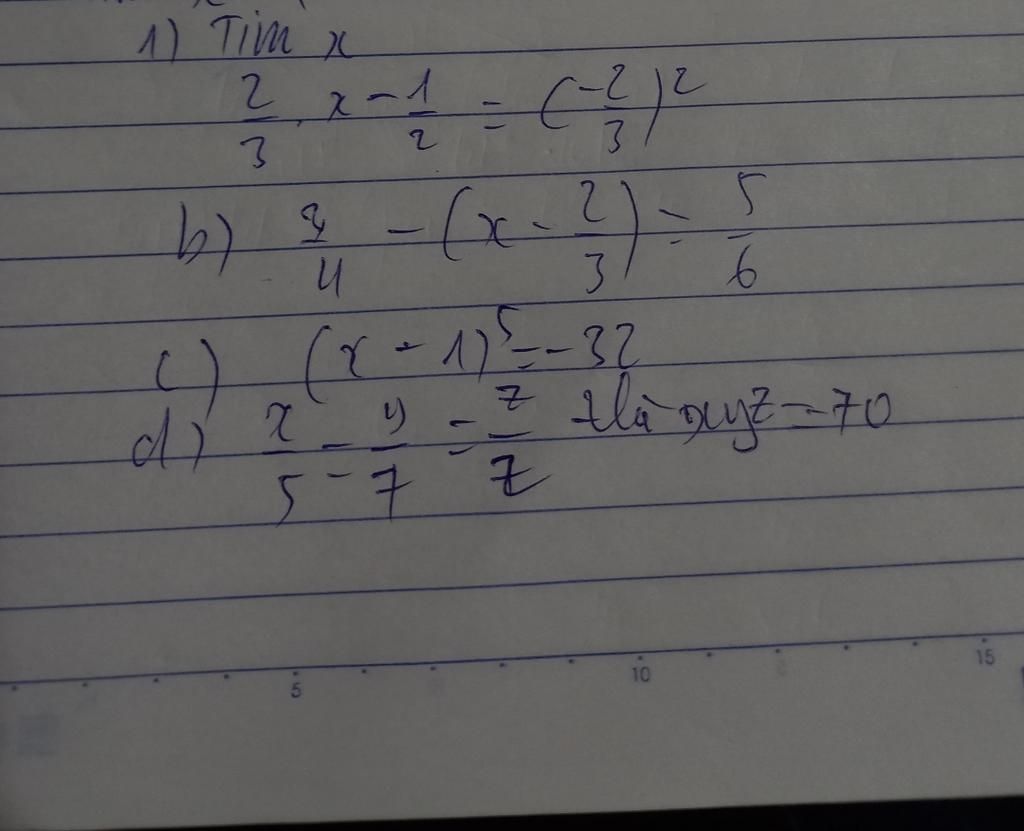 1) Tìm x
2/3 . x - 1/2 = (-2/3)²
b) 3/4 - (x - 2/3) = 5/6
c) (x - 1)⁵ = -32
d) x/5 = y/7 = z/z và xyz = 70
5 10 15